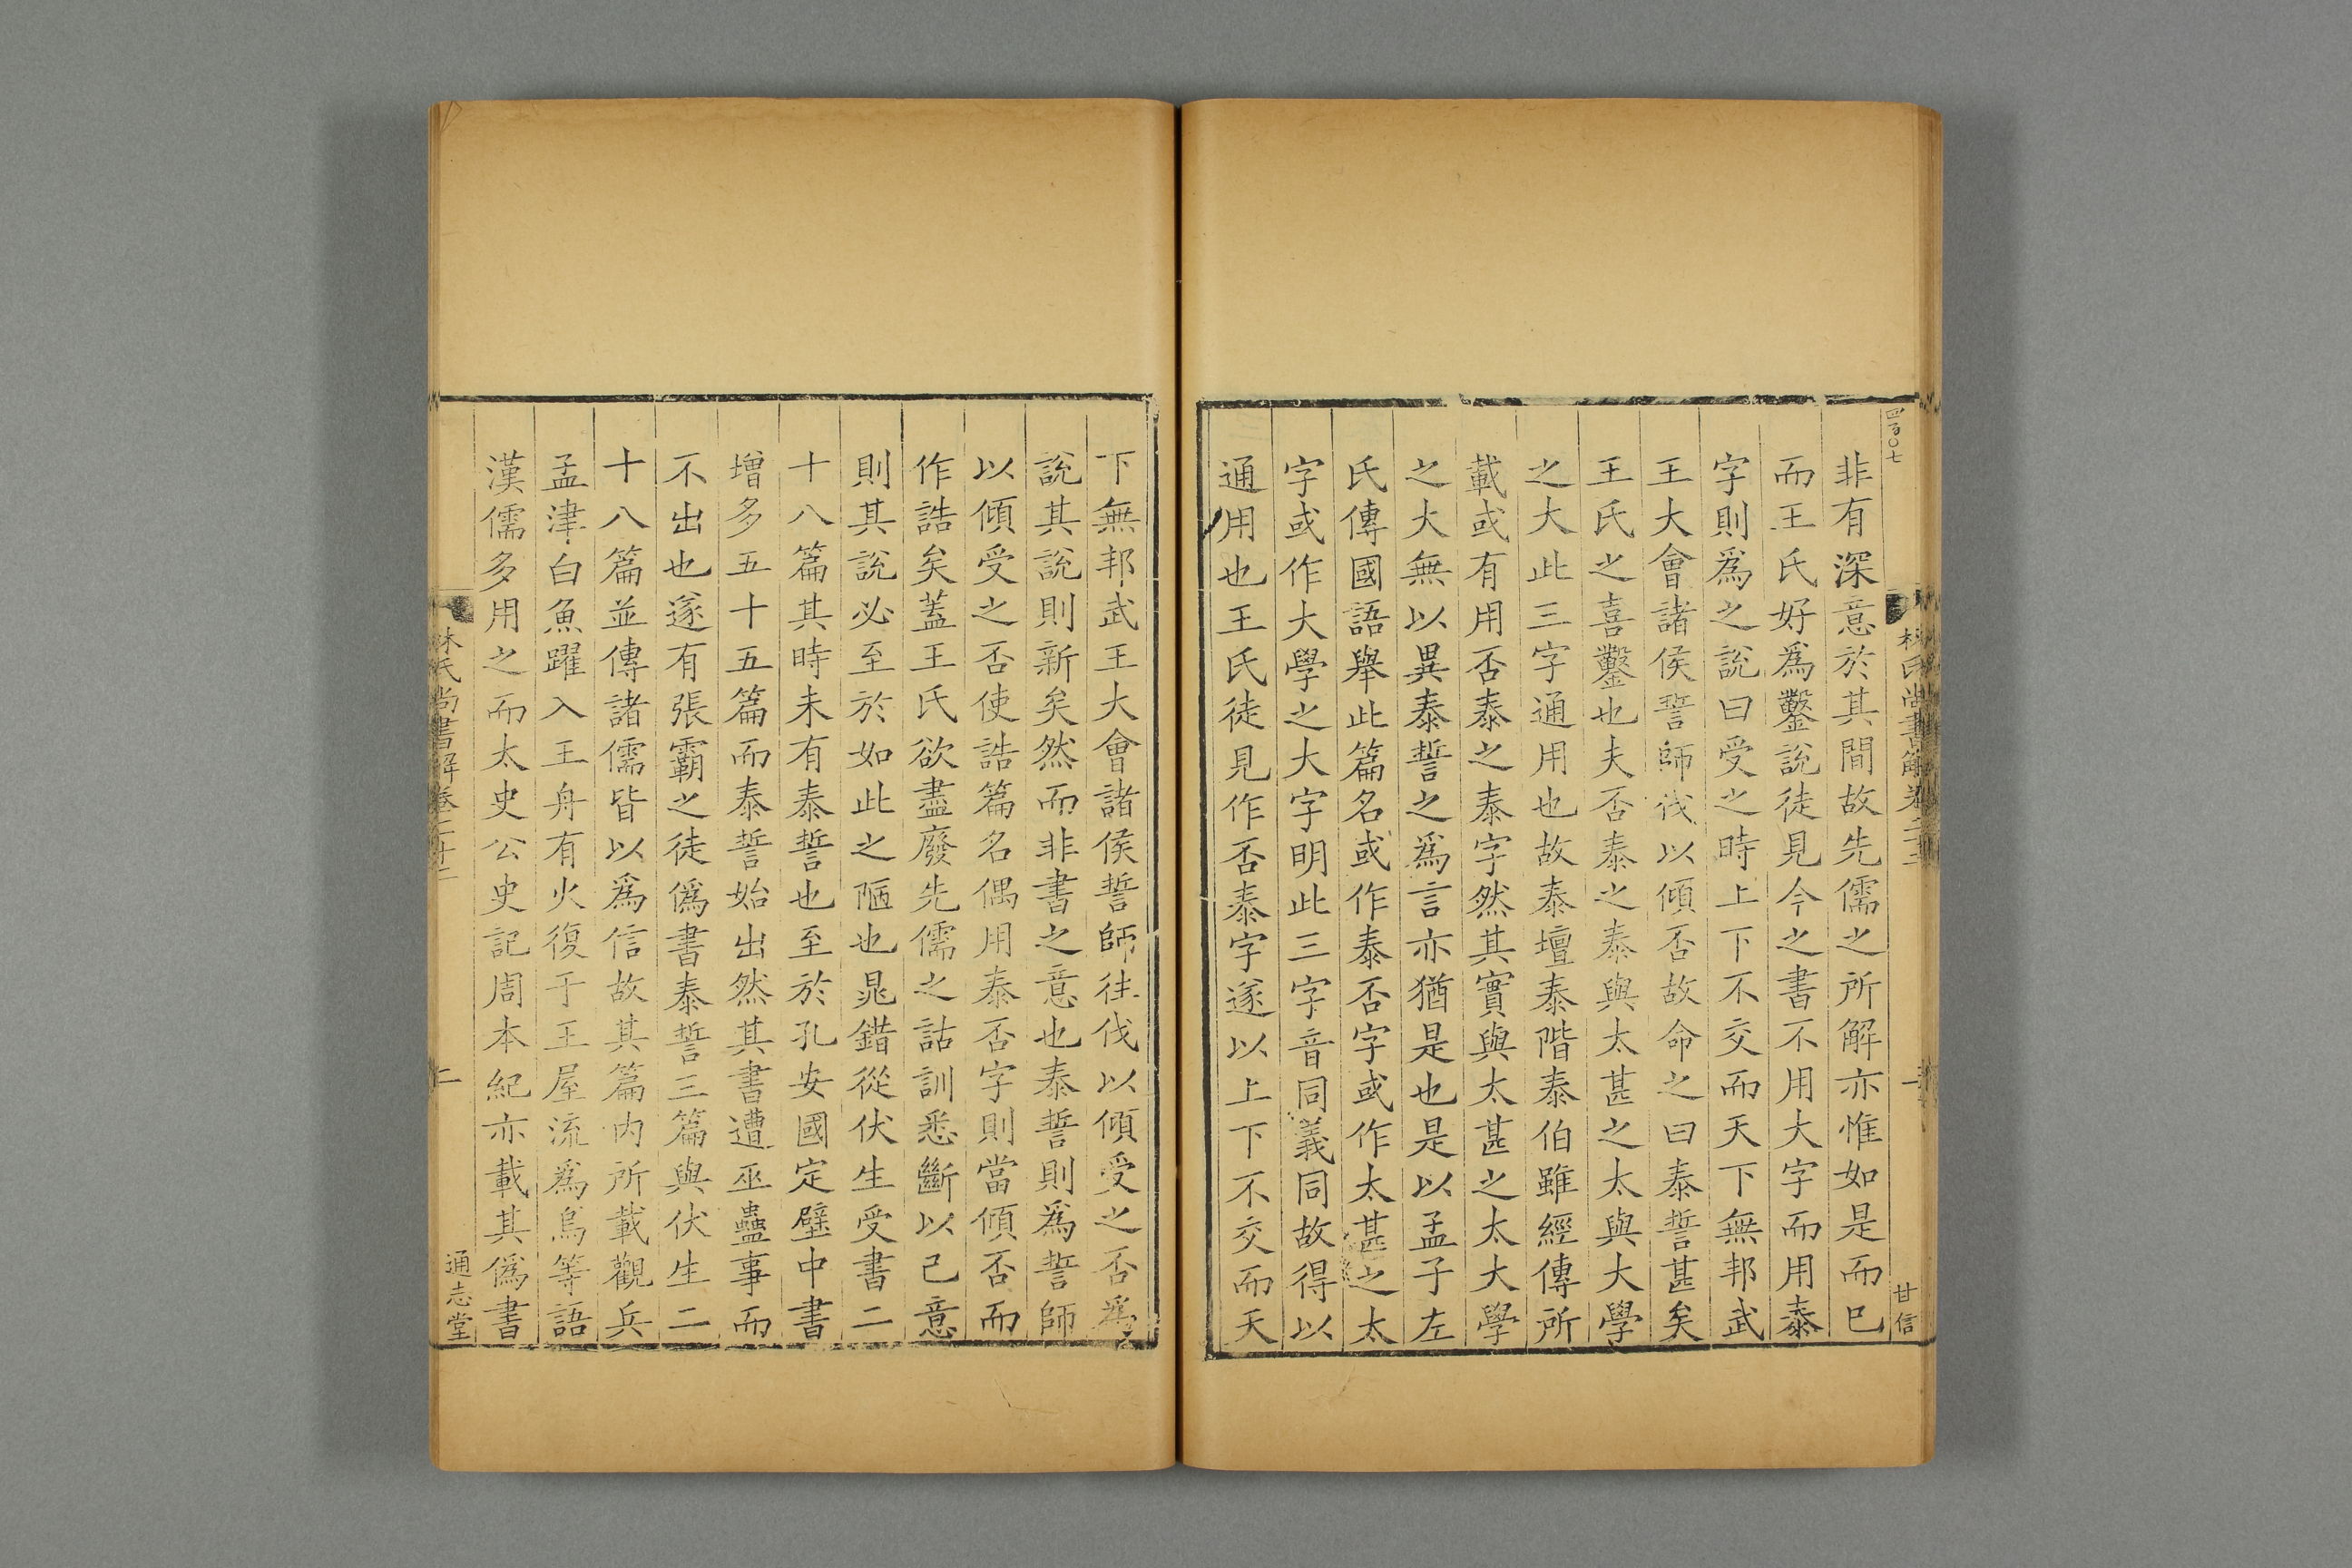 四百〇七
林氏尚書解卷二十二
一
甘信
非有深意於其間故先儒之所解亦惟如是而已
而王氏好爲鑿說徒見今之書不用大字而用泰
字則爲之說曰受之時上下不交而天下無邦武
王大會諸侯誓師伐以傾否故命之曰泰誓甚矣
王氏之喜鑿也夫否泰之泰與太甚之太與大學
之大此三字通用也故泰壇泰階泰伯雖經傳所
載或有用否泰之泰字然其實與太甚之太大學
之大無以異泰誓之爲言亦猶是也是以孟子左
氏傳國語舉此篇名或作泰否字或作太甚之太
字或作大學之大字明此三字音同義同故得以
通用也王氏徒見作否泰字遂以上下不交而天
下無邦武王大會諸侯誓師往伐以傾受之否爲
說其說則新矣然而非書之意也泰誓則爲誓師
以傾受之否使誥篇名偶用泰否字則當傾否而
作誥矣蓋王氏欲盡廢先儒之詁訓悉斷以己意
則其說必至於如此之陋也晁錯從伏生受書二
十八篇其時未有泰誓也至於孔安國定壁中書
增多五十五篇而泰誓始出然其書遭巫蠱事而
不出也遂有張霸之徒僞書泰誓三篇與伏生二
十八篇並傳諸儒皆以爲信故其篇內所載觀兵
孟津白魚躍入王舟有火復于王屋流爲烏等語
漢儒多用之而太史公史記周本紀亦載其僞書
林氏尚書解卷二十二
二
通志堂